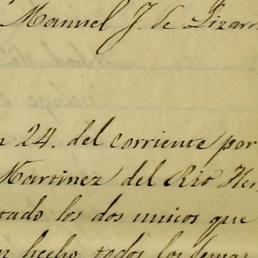 Manuel J. de Lizard
24. del corriente por
Martinez del Rio Her
tado los dos unicos que
hecho todos los demas